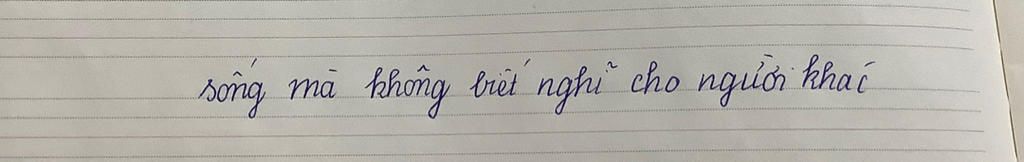 sống mà không biết nghĩ cho người khác